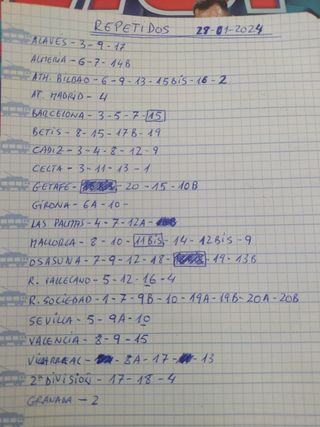 REPETIDOS 28-01-2024
ALAVÉS - 3 - 9 - 17
ALMERIA - 6 - 7 - 14B
ATH. BILBAO - 6 - 9 - 13 - 15BIS - 16 - 2
AT. MADRID - 4
BARCELONA - 3 - 5 - 7 - 15
BETIS - 8 - 15 - 17B - 19
CADIZ - 3 - 4 - 8 - 12 - 9
CELTA - 3 - 11 - 13 - 1
GETAFE - 20 - 15 - 10B
GIRONA - 6A - 10 -
LAS PALMAS - 4 - 7 - 12A -
MALLORCA - 8 - 10 - 11BIS - 14 - 12BIS - 9
OSASUNA - 7 - 9 - 12 - 18 - 19 - 13B
R. VALLECANO - 5 - 12 - 16 - 4
R. SOCIEDAD - 1 - 7 - 9B - 10 - 19A - 19B - 20A - 20B
SEVILLA - 5 - 9A - 10
VALENCIA - 8 - 9 - 15
VILLARREAL - 8A - 17 - 13
2ª DIVISIÓN - 17 - 18 - 4
GRANADA - 2